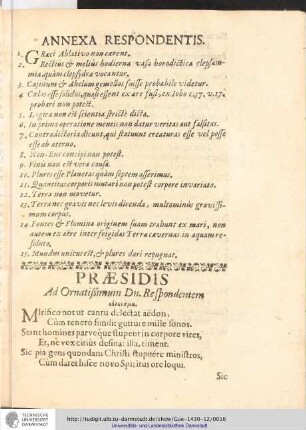 ANNEXA RESPONDENTIS.
1. GRæci Ablativo non carent.
2. Rectius & melius hodierna vasa horodictica clepsam-
mia quàm clepsydra vocantur.
3. Cajinum & Abelum gemellos fuisse probabile videtur.
4. Cælos esse solidos, quasi essent ex ære fusi, ex Iobo c. 37. v. 17.
probari non potest.
5. Logica non est scientia strictè dicta.
6. In prima operatione mentis non datur veritas aut falsitas.
7. Contradictoria dicunt, qui statuunt creaturas esse vel posse
esse ab aeterno.
8. Non-Ens concipi non potest.
9. Finis non est vera causa.
10. Plures esse Planetas quàm septem asserimus.
11. Quantitas corporis mutari non potest corpore invariato.
12. Terra non movetur.
13. Terra nec gravis nec levis dicenda, multominùs gravissi-
mum corpus.
14. Fontes & Flumina originem suam trahunt ex mari, non
autem ex aëre inter frigidas Terræ cavernas in aquam re-
soluto.
15. Mundus unicus est, & plures dari repugnat.
PRÆSIDIS
Ad Ornatissimum Dn. Respondentem
MIrifico nos ut cantu delectat aëdon,
Cùm tenero fundit gutture mille sonos.
Stant homines parvæque stupent in corpore vires,
Et, nè vox citiùs desinat illa, timent.
Sic pia gens quondam Christi stupuêre ministros,
Cùm daret hisce novo Spiritus ore loqui.
Sic
TECHNISCHE
UNIVERSITÄT
DARMSTADT
http://tudigit.ulb.tu-darmstadt.de/show/Gue-1430-12/0016
Universitäts- und Landesbibliothek Darmstadt